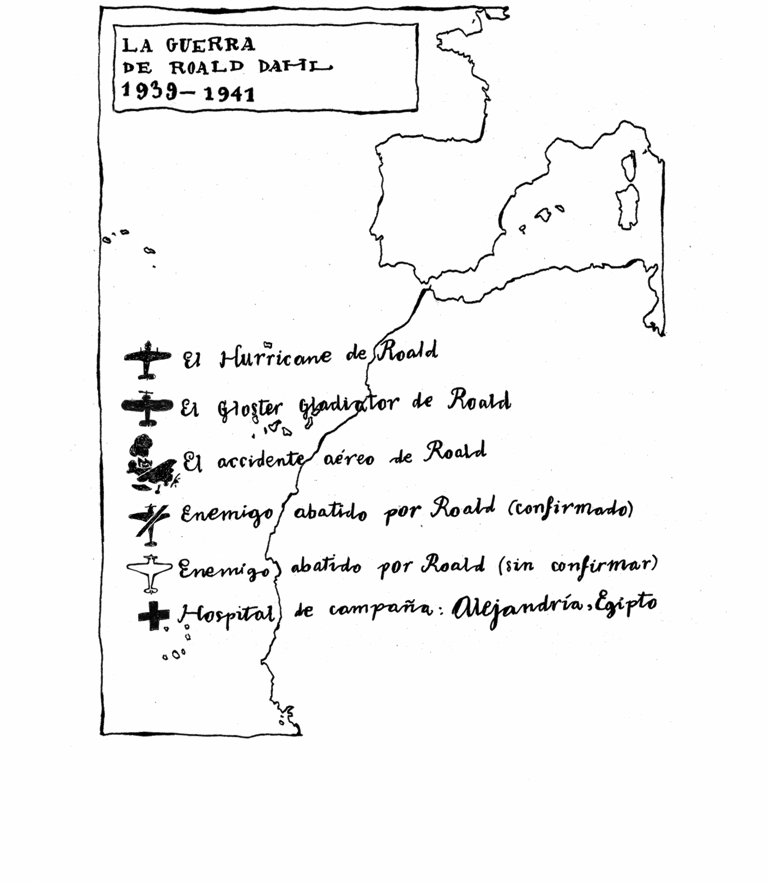 LA GUERRA
DE ROALD DAHL
1939-1941
El Hurricane de Roald
El Gloster Gladiator de Roald
El accidente aéreo de Roald
Enemigo abatido por Roald (confirmado)
Enemigo abatido por Roald (sin confirmar)
Hospital de campaña: Alejandría, Egipto